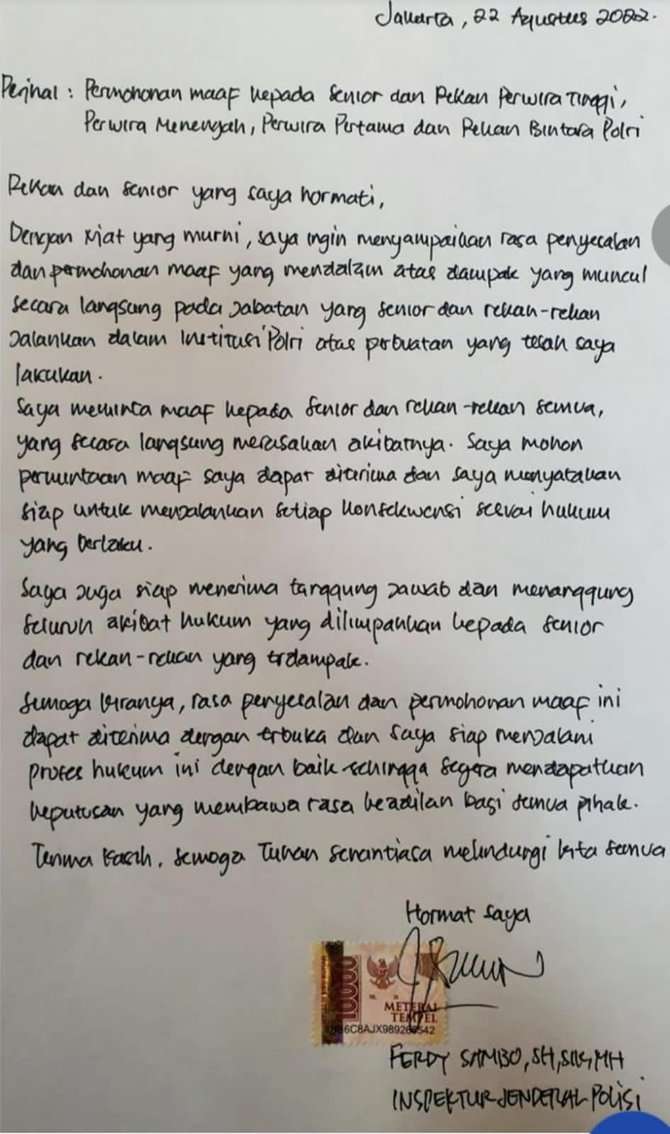 Jakarta, 22 Agustus 2022.
Perihal : Permohonan maaf kepada Senior dan Rekan Perwira Tinggi,
Perwira Menengah, Perwira Pertama dan Rekan Bintara Polri
Rekan dan senior yang saya hormati,
Dengan Niat yang murni, saya ingin menyampaikan rasa penyesalan
dan permohonan maaf yang mendalam atas dampak yang muncul
secara langsung pada Jabatan yang senior dan rekan-rekan
Jalankan dalam Institusi Polri atas perbuatan yang telah saya
lakukan.
Saya meminta maaf kepada Senior dan rekan-rekan semua,
yang secara langsung merasakan akibatnya. Saya mohon
permintaan maaf saya dapat diterima dan saya menyatakan
siap untuk menjalankan setiap konsekwensi sesuai hukum
yang berlaku.
Saya Juga siap menerima tanggung Jawab dan menanggung
seluruh akibat hukum yang dilimpahkan kepada senior
dan rekan-rekan yang terdampak.
Semoga kiranya, rasa penyesalan dan permohonan maaf ini
dapat diterima dengan terbuka dan Saya siap menjalani
proses hukum ini dengan baik sehingga segera mendapatkan
keputusan yang membawa rasa keadilan bagi semua pihak.
Terima kasih, semoga Tuhan senantiasa melindungi kita semua
Hormat saya
10000
METERAI
TEMPEL
FERDY SAMBO, SH, SIK, MH
INSPEKTUR JENDERAL POLISI